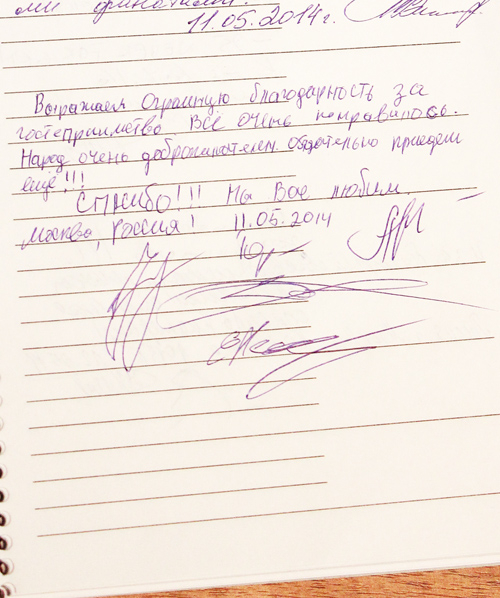 11.05.2014г.
Выражаем Огромную благодарность за
гостеприимство Все очень понравилось.
Народ очень доброжелателен обязательно приедем
ещё!!!
Спасибо!!! Мы Вас любим.
Москва, Россия! 11.05.2014